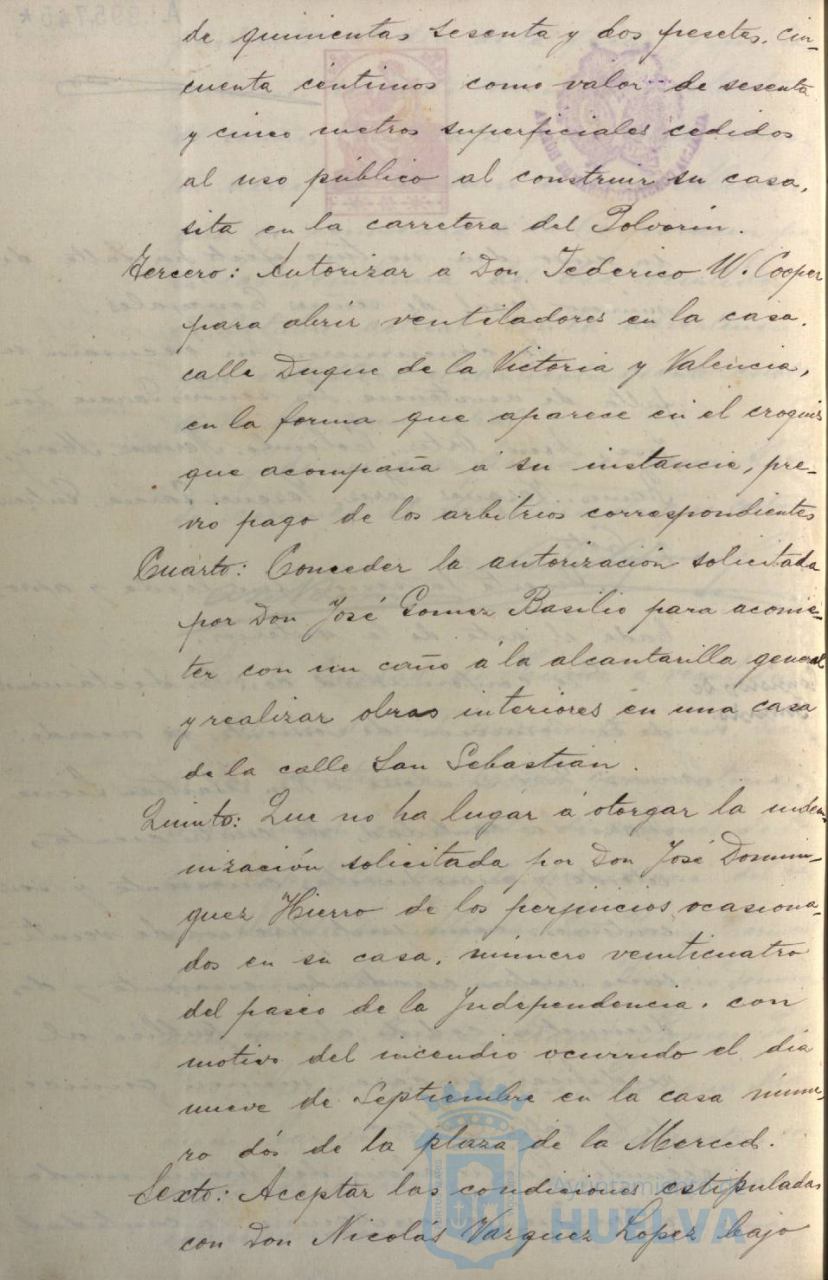 de quinientas sesenta y dos pesetas, cin-
cuenta céntimos como valor de sesenta
y cinco metros superficiales cedidos
al uso público al construir su casa,
sita en la carretera del Polvorín.
Tercero: Autorizar á Don Federico W. Cooper
para abrir ventiladores en la casa,
calle Duque de la Victoria y Valencia,
en la forma que aparece en el croquis
que acompaña á su instancia, pre-
vio pago de los arbitrios correspondientes
Cuarto: Conceder la autorización solicitada
por Don José Gomez Basilio para acome-
ter con un caño á la alcantarilla general
y realizar obras interiores en una casa
de la calle San Sebastián.
Quinto: Que no ha lugar á otorgar la indem-
nización solicitada por Don José Domin-
guez Hierro de los perjuicios ocasiona-
dos en su casa, número veinticuatro
del paseo de la Independencia, con
motivo del incendio ocurrido el dia
nueve de Septiembre en la casa núme-
ro dós de la plaza de la Merced.
Sexto: Aceptar las condiciones estipuladas
con Don Nicolás Vazquez Lopez bajo
Ayuntamiento
HUELVA